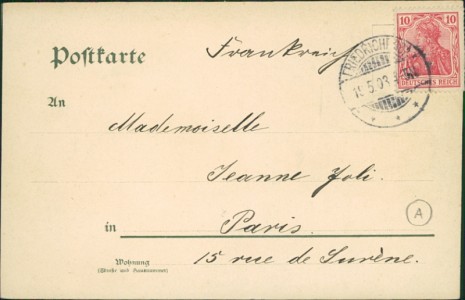 Postkarte
Frankreich
10 10
DEUTSCHES REICH
An
Mademoiselle
Jeanne Joli.
in Paris.
A
Wohnung
(Straße und Hausnummer)
15 rue de Surène.